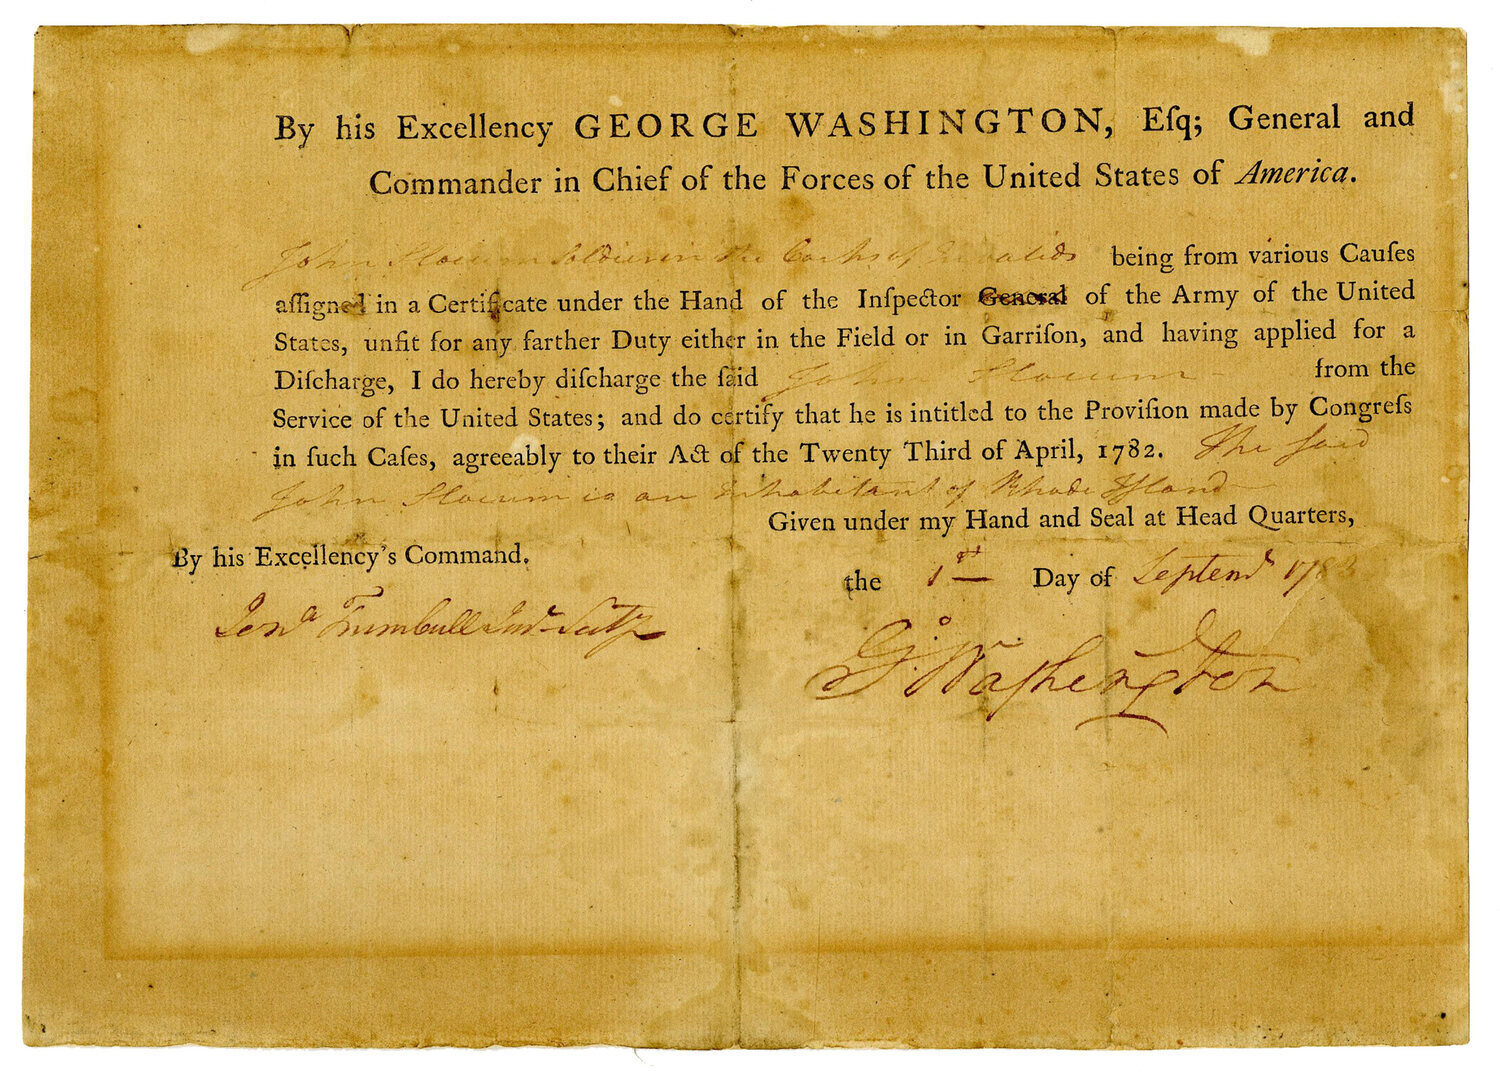 By his Excellency GEORGE WASHINGTON, Eſq; General and
Commander in Chief of the Forces of the United States of America.
John Slocum Soldier in the Corps of Invalids being from various Cauſes
aſſigned in a Certificate under the Hand of the Inſpector General of the Army of the United
States, unfit for any farther Duty either in the Field or in Garriſon, and having applied for a
Diſcharge, I do hereby diſcharge the ſaid John Slocum from the
Service of the United States; and do certify that he is intitled to the Proviſion made by Congreſs
in ſuch Caſes, agreeably to their Act of the Twenty Third of April, 1782. The ſaid
John Slocum is an inhabitant of Rhode Iſland
Given under my Hand and Seal at Head Quarters,
By his Excellency's Command.
the 1st Day of Septemr 1783
Jona Trumbull Junr Secty
Go Waſhington